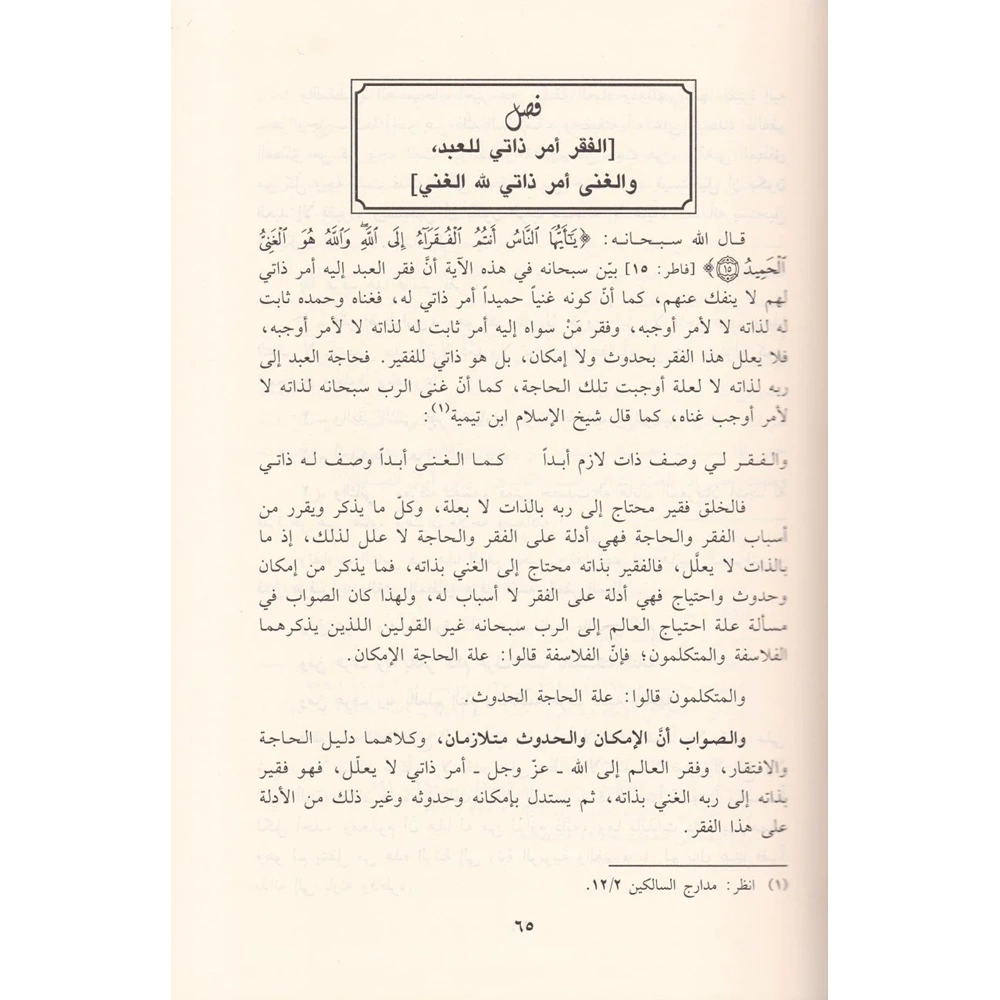 فصل
[الفقر أمر ذاتي للعبد،
والغنى أمر ذاتي لله الغني]
قال الله سبحانه: ﴿يَٰٓأَيُّهَا ٱلنَّاسُ أَنتُمُ ٱلْفُقَرَآءُ إِلَى ٱللَّهِ ۖ وَٱللَّهُ هُوَ ٱلْغَنِىُّ
ٱلْحَمِيدُ ۝١٥﴾ [فاطر: ١٥] بيّن سبحانه في هذه الآية أنَّ فقر العبد إليه أمر ذاتي
لهم لا ينفك عنهم، كما أنّ كونه غنياً حميداً أمر ذاتي له، فغناه وحمده ثابت
له لذاته لا لأمر أوجبه، وفقر مَنْ سواه إليه أمر ثابت له لذاته لا لأمر أوجبه،
فلا يعلل هذا الفقر بحدوث ولا إمكان، بل هو ذاتي للفقير. فحاجة العبد إلى
ربه لذاته لا لعلة أوجبت تلك الحاجة، كما أنّ غنى الرب سبحانه لذاته لا
لأمر أوجب غناه، كما قال شيخ الإسلام ابن تيمية(١):
والفقر لي وصف ذات لازم أبداً كما الغنى أبداً وصف له ذاتي
فالخلق فقير محتاج إلى ربه بالذات لا بعلة، وكلّ ما يذكر ويقرر من
أسباب الفقر والحاجة فهي أدلة على الفقر والحاجة لا علل لذلك، إذ ما
بالذات لا يعلَّل، فالفقير بذاته محتاج إلى الغني بذاته، فما يذكر من إمكان
وحدوث واحتياج فهي أدلة على الفقر لا أسباب له، ولهذا كان الصواب في
مسألة علة احتياج العالم إلى الرب سبحانه غير القولين اللذين يذكرهما
الفلاسفة والمتكلمون؛ فإنّ الفلاسفة قالوا: علة الحاجة الإمكان.
والمتكلمون قالوا: علة الحاجة الحدوث.
والصواب أنَّ الإمكان والحدوث متلازمان، وكلاهما دليل الحاجة
والافتقار، وفقر العالم إلى الله ـ عزّ وجل ـ أمر ذاتي لا يعلّل، فهو فقير
بذاته إلى ربه الغني بذاته، ثم يستدل بإمكانه وحدوثه وغير ذلك من الأدلة
على هذا الفقر.
(١) انظر: مدارج السالكين ١٢/٢.
٦٥